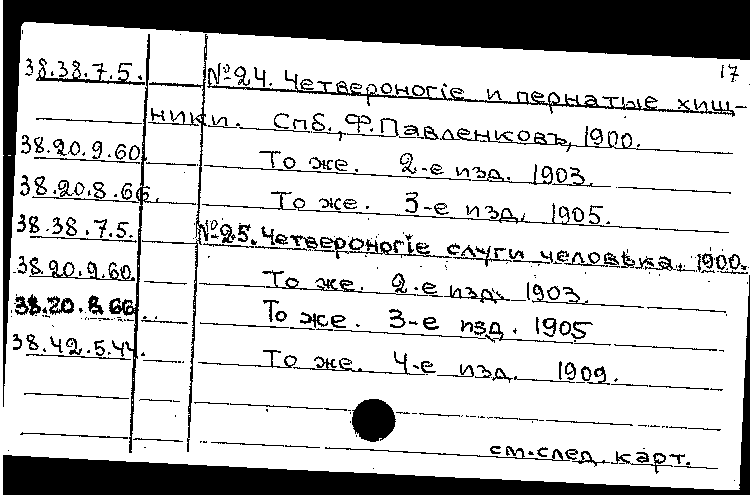 17
38.38.7.5. №24. Четвероногіе и пернатые хищ-
ники. Спб., Ф.Павленковъ, 1900.
38.20.9.60. То же. 2-е изд. 1903.
38.20.8.66. То же. 3-е изд. 1905.
38.38.7.5. №25. Четвероногіе слуги человѣка. 1900.
38.20.9.60. То же. 2-е изд. 1903.
38.20.8.66. То же. 3-е изд. 1905
38.42.5.44. То же. 4-е изд. 1909.
см.след. карт.